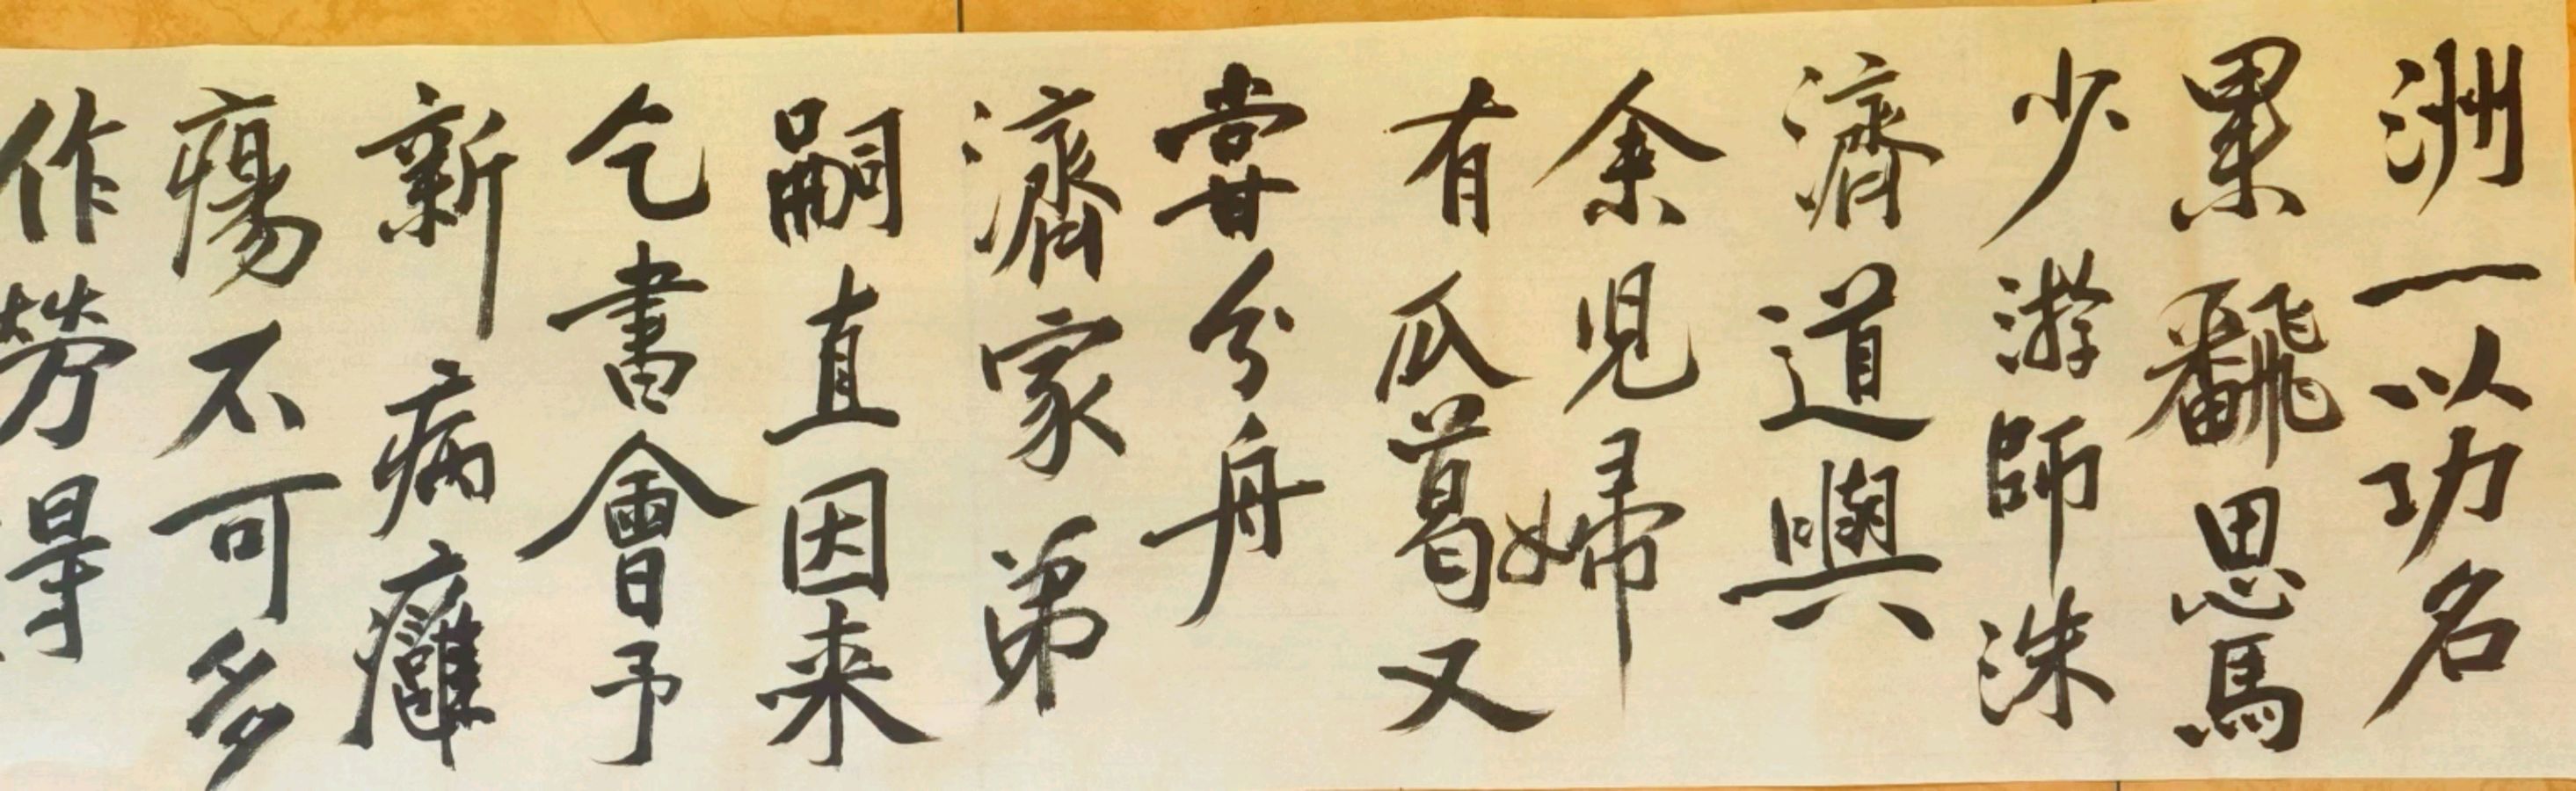 洲一以功名
累飜思馬
少游師洙
濟道與
余兒婦
有瓜葛又
甞分舟
濟家弟
嗣直因来
乞書會予
新病癰
瘍不可多
作勞得